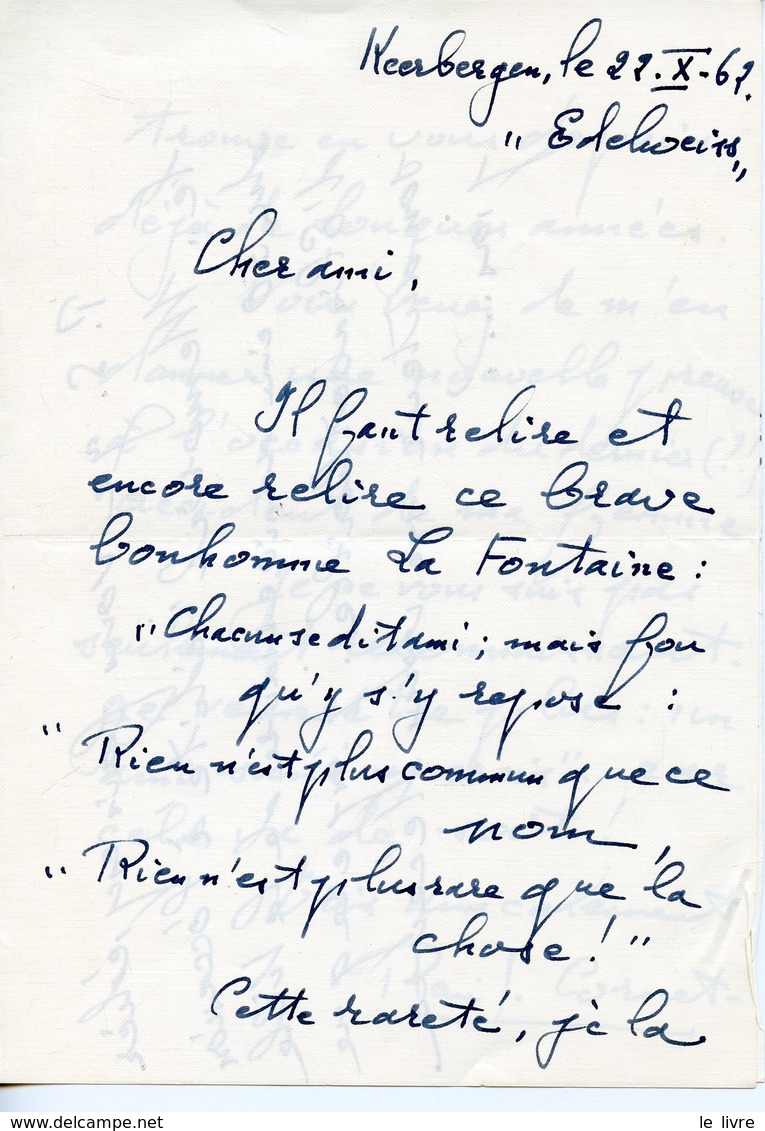 Keerbergen, le 22.X-62.
"Edelweiss"
Cher ami,
Il faut relire et
encore relire ce brave
bonhomme La Fontaine :
"Chacun se dit ami ; mais fou
qu'y s'y repose :
"Rien n'est plus commun que ce
nom,
"Rien n'est plus rare que la
chose !"
Cette rareté, je la
delcampe.net
le livre